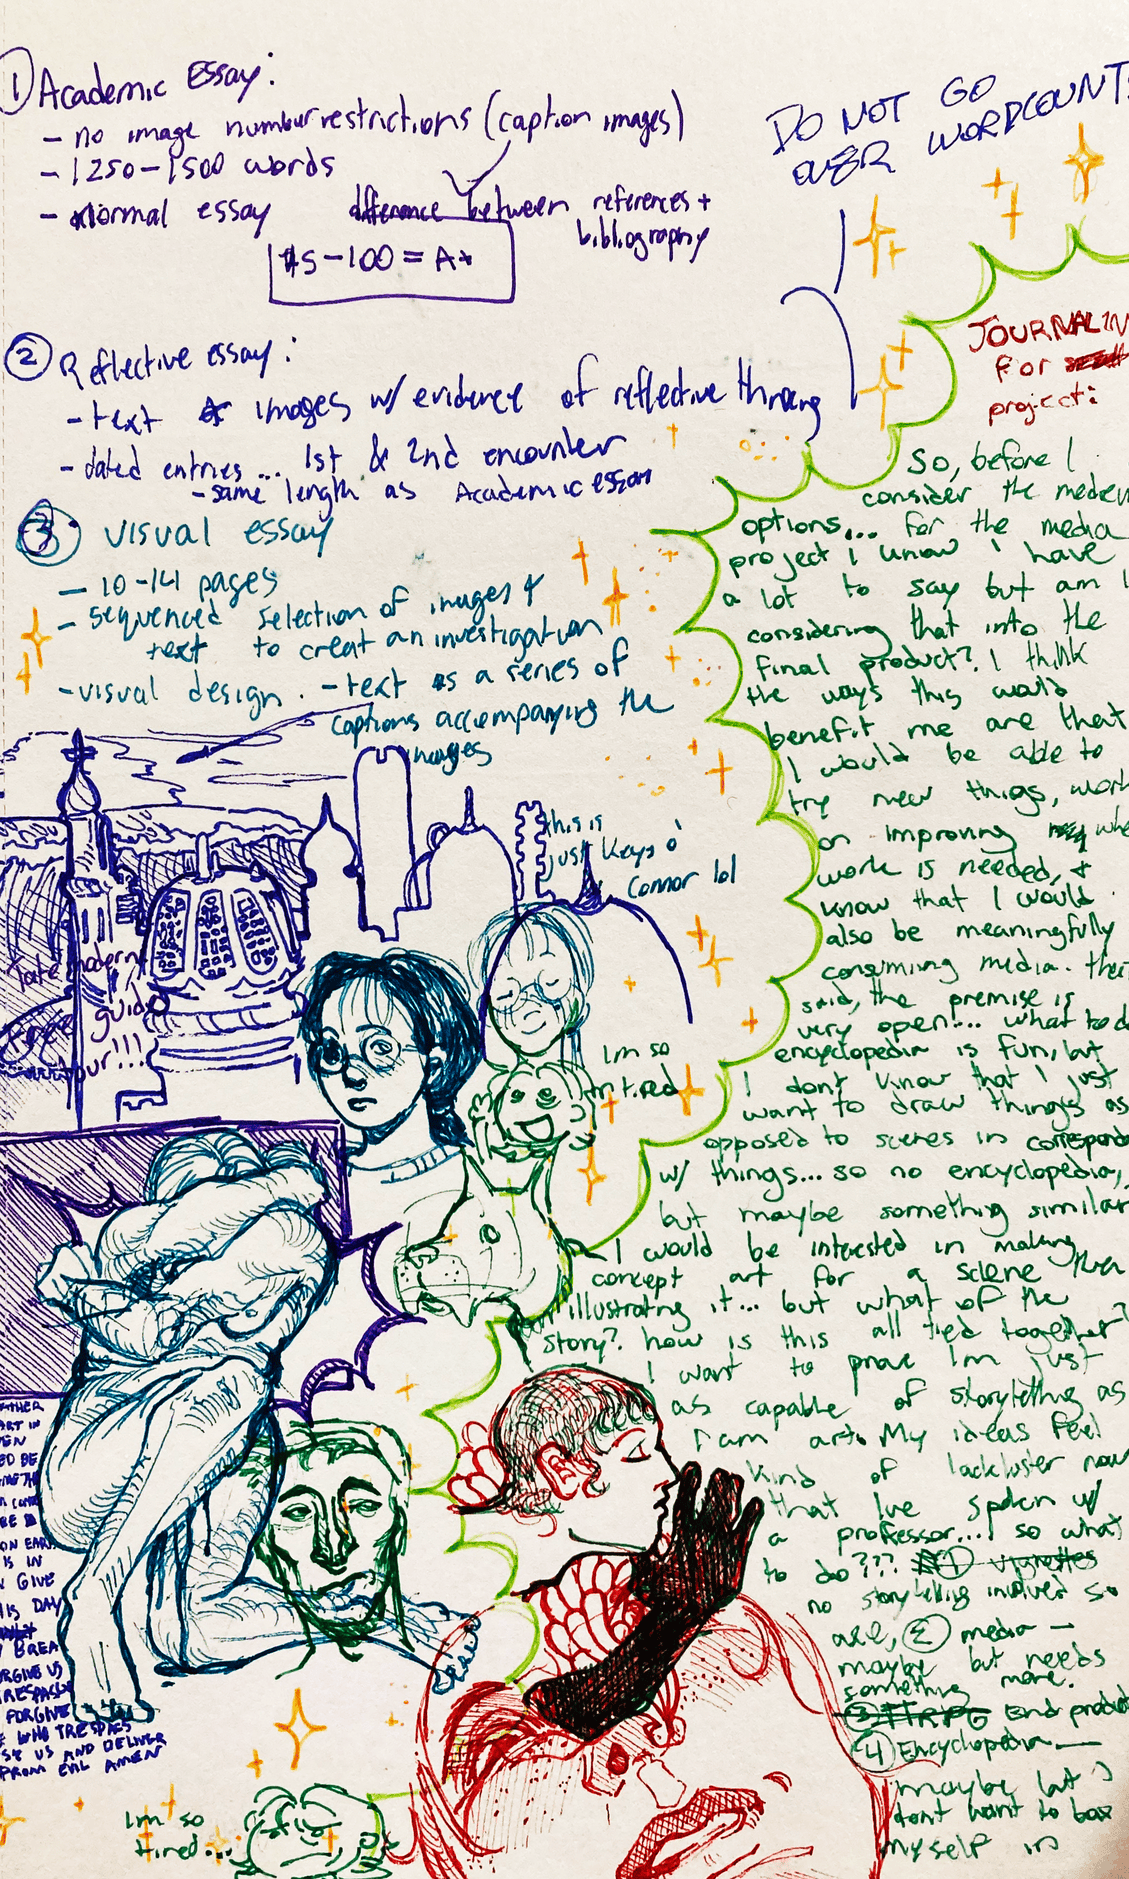 1 Academic Essay:
- no image number restrictions (caption images)
- 1250-1500 words
- Normal essay
difference between references +
bibliography
45-100 = A+
DO NOT GO
OVER WORDCOUNTS
2 Reflective essay:
- text & images w/ evidence of reflective thinking
- dated entries... 1st & 2nd encounter
- same length as Academic essay
3 visual essay
- 10-14 pages
- sequenced selection of images &
text to creat an investigation
- visual design. - text as a series of
captions accompanying the
images
this is
just Keys o'
Connor lol
Tate modern
guide
tour!!!
Im so
tired
JOURNALIN
for
project:
So, before I
consider the medium
options... for the media
project I know I have
a lot to say but am I
considering that into the
final product? I think
the ways this would
benefit me are that
I would be able to
try new things, work
on improving whe
work is needed, &
know that I would
also be meaningfully
consuming media. that
said, the premise is
very open!... what to do
encyclopedia is fun, but
I dont know that I just
want to draw things as
opposed to scenes in correspond
w/ things... so no encyclopedia,
but maybe something similar
I would be interested in making
concept art for a scene then
illustrating it... but what of the
story? how is this all tied together?
I want to prove Im just
as capable of storytelling as
I am art. My ideas feel
kind of lackluster now
that Ive spoken w/
a professor... so what
to do??? 1 vignettes
no storytelling involved so
2 media -
maybe but needs
something more.
3 TTRPG End product
4 Encyclopedia -
maybe but I
dont want to box
myself in
ATHER
ART IN
VEN
ED BE
COME
BE
ON EAR
IS IN
GIVE
IS DAY
BREA
ORGIVE US
RESPASS
FORGIVE
WHO TRESPASS
US AND DELIVER
FROM EVIL AMEN
Im so
tired...